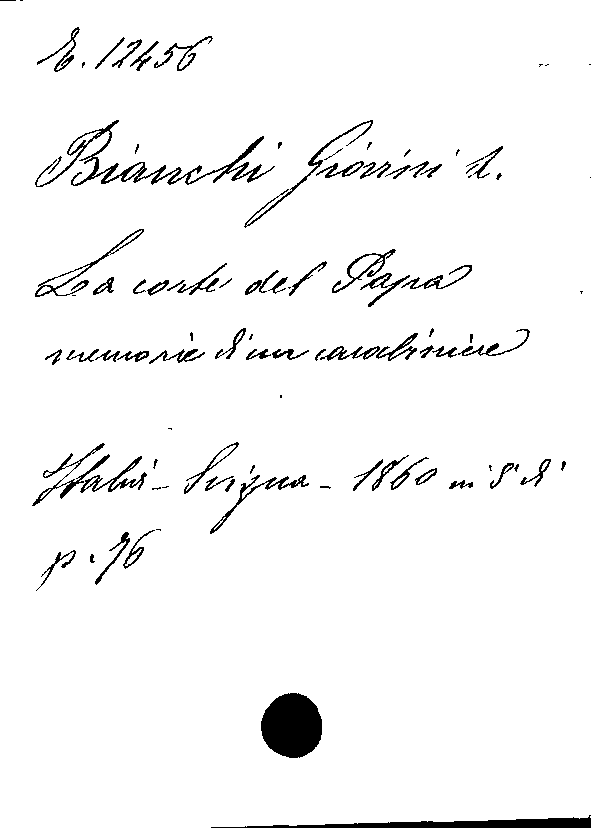 E. 12456
Bianchi Giovini A.
La corte del Papa
memorie di un carabiniere
Italia - - 1860 in 8° di
p. 76